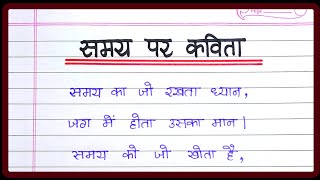 समय पर कविता
समय का जो रखता ध्यान,
जग में होता उसका मान।
समय को जो खोता है,